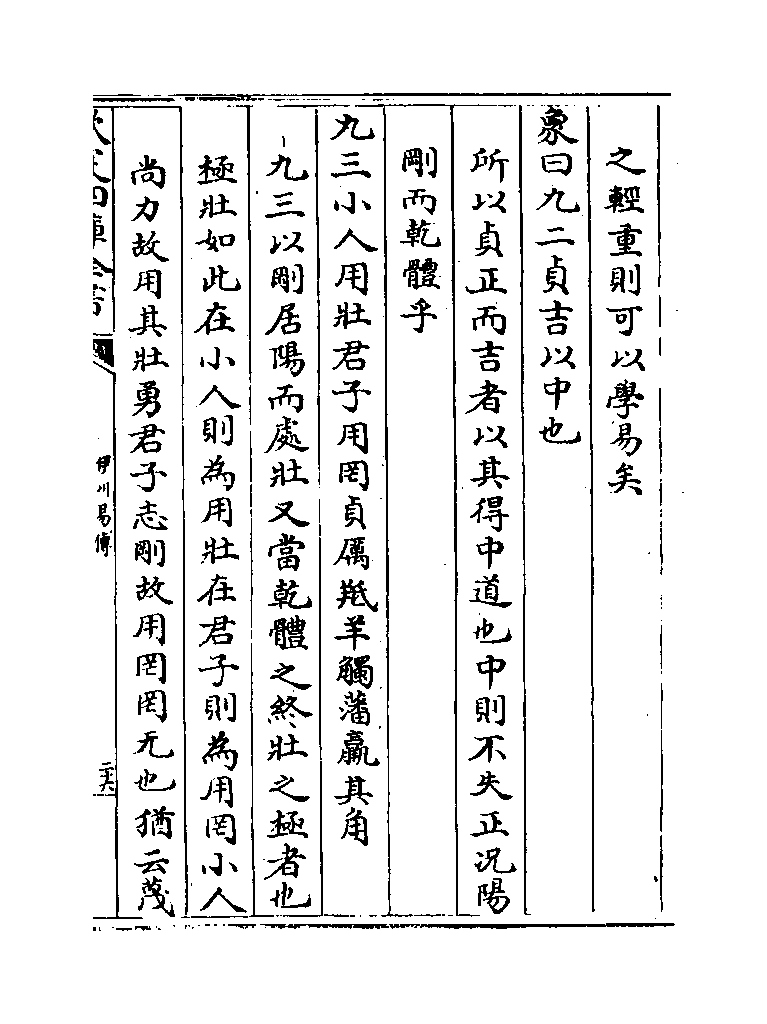 之輕重則可以學易矣
象曰九二貞吉以中也
所以貞正而吉者以其得中道也中則不失正況陽
剛而乾體乎
九三小人用壯君子用罔貞厲羝羊觸藩羸其角
九三以剛居陽而處壯又當乾體之終壯之極者也
極壯如此在小人則為用壯在君子則為用罔小人
尚力故用其壯勇君子志剛故用罔罔无也猶云蔑
欽定四庫全書
伊川易傳
二十六